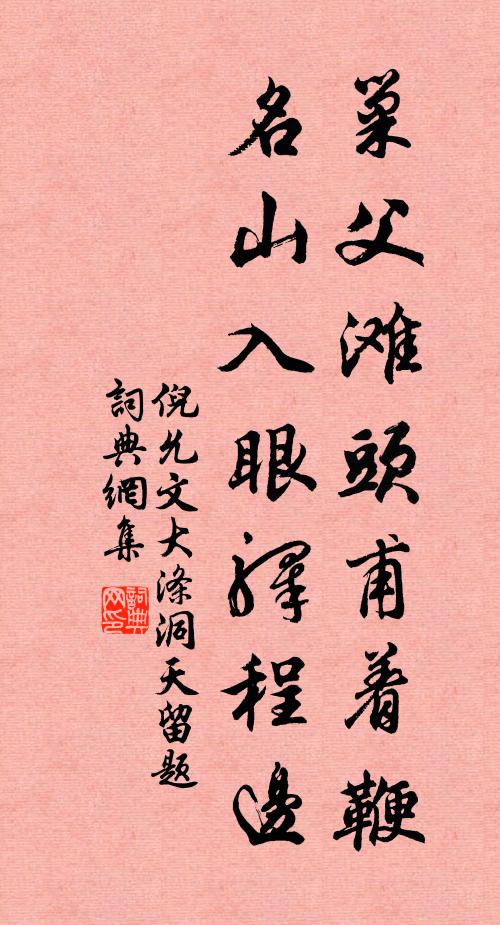 巢父滩頭甫着鞭
名山入眼驛程邊
倪允文大涤洞天留题
詞典網集
詞典网印